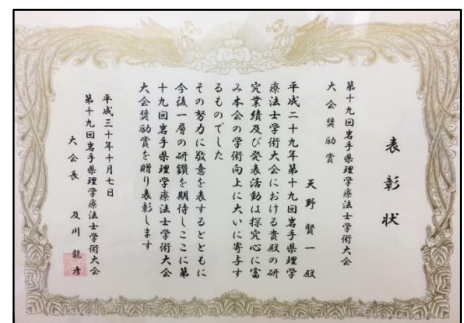 表彰状
第十九回岩手県理学療法士学術大会
大会奨励賞
天野賢一 殿
平成二十九年第十九回岩手県理学
療法士学術大会における貴殿の研
究業績及び発表活動は探究心に富
み本会の学術向上に大いに寄与す
るものでした
その努力に敬意を表するとともに
今後一層の研鑽を期待しここに第
十九回岩手県理学療法士学術大会
大会奨励賞を贈り表彰します
平成三十年十月七日
第十九回岩手県理学療法士学術大会
大会長 及川龍彦